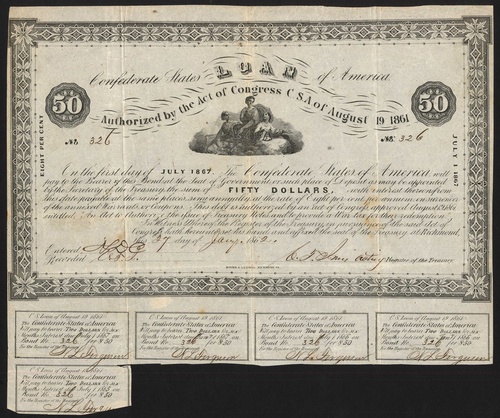 LOAN
Confederate States of America
Authorized by the Act of Congress C.S.A of August 19 1861
50
50
No. 326
No. 326
EIGHT PER CENT
JULY 1 1867
On the first day of JULY 1867 The Confederate States of America will
pay to the Bearer of this Bond at the Seat of Government or such place of Deposit as may be appointed
by the Secretary of the Treasury the sum of FIFTY DOLLARS, with interest thereon from
this date payable at the same place, semi annually at the rate of Eight per cent per annum on surrender
of the annexed Warrants or Coupons. This debt is authorized by an act of Congress approved August 19th 1861
entitled "An Act to authorize the Issue of Treasury Notes and to provide a War tax for their redemption"
In Witness Whereof the Register of the Treasury in pursuance of the said Act of
Congress hath hereunto set his hand and affixed the seal of the Treasury at Richmond,
Entered this 27 day of Jany. 1862
Recorded Register of the Treasury
C.S. Loan of August 19 1861
The Confederate States of America
will pay to bearer Two Dollars for six
Months Interest due
Bond No. 326 for $50
For the Register of the Treasury
C.S. Loan of August 19 1861
The Confederate States of America
will pay to bearer Two Dollars for six
Months Interest due
Bond No. 326 for $50
For the Register of the Treasury
C.S. Loan of August 19 1861
The Confederate States of America
will pay to bearer Two Dollars for six
Months Interest due
Bond No. 326 for $50
For the Register of the Treasury
C.S. Loan of August 19 1861
The Confederate States of America
will pay to bearer Two Dollars for six
Months Interest due
Bond No. 326 for $50
For the Register of the Treasury
C.S. Loan of August 19 1861
The Confederate States of America
will pay to bearer Two Dollars for six
Months Interest due July 1 1865 on
Bond No. 326 for $50
For the Register of the Treasury